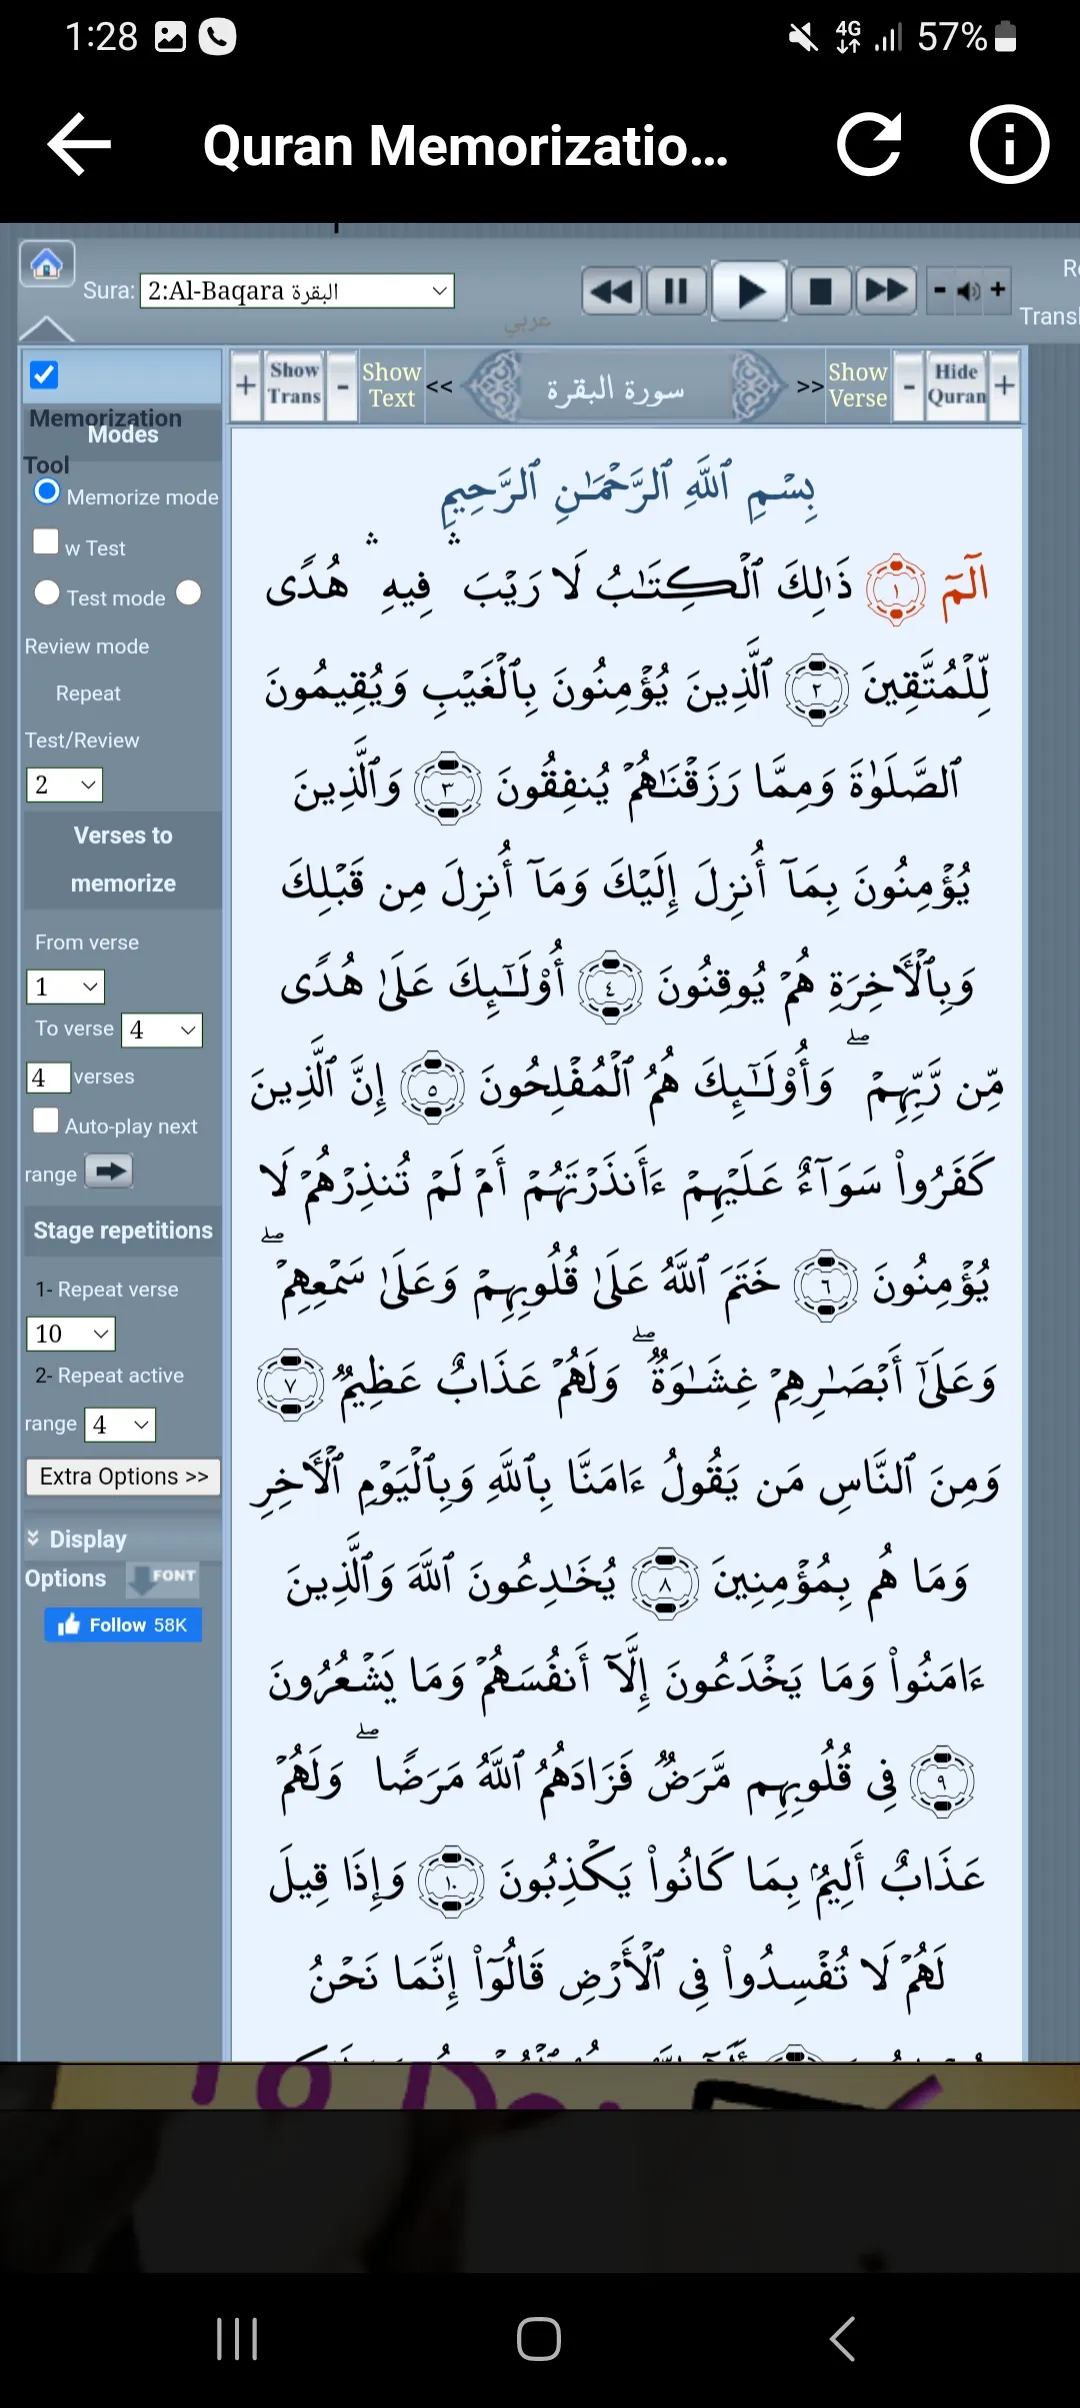 1:28 4G 57%
Quran Memorizatio...
Sura: 2:Al-Baqara البقرة
عربي
Transl
Show Trans
Show Text
<<
سورة البقرة
>>
Show Verse
Hide Quran
Memorization Tool
Modes
Memorize mode
w Test
Test mode
Review mode
Repeat
Test/Review
2
Verses to
memorize
From verse
1
To verse 4
4 verses
Auto-play next
range
Stage repetitions
1- Repeat verse
10
2- Repeat active
range 4
Extra Options >>
Display
Options FONT
Follow 58K
بِسْمِ ٱللَّهِ ٱلرَّحْمَـٰنِ ٱلرَّحِيمِ
الٓمٓ ١ ذَٰلِكَ ٱلْكِتَـٰبُ لَا رَيْبَ ۛ فِيهِ ۛ هُدًى
لِّلْمُتَّقِينَ ٢ ٱلَّذِينَ يُؤْمِنُونَ بِٱلْغَيْبِ وَيُقِيمُونَ
ٱلصَّلَوٰةَ وَمِمَّا رَزَقْنَـٰهُمْ يُنفِقُونَ ٣ وَٱلَّذِينَ
يُؤْمِنُونَ بِمَآ أُنزِلَ إِلَيْكَ وَمَآ أُنزِلَ مِن قَبْلِكَ
وَبِٱلْـَٔاخِرَةِ هُمْ يُوقِنُونَ ٤ أُو۟لَـٰٓئِكَ عَلَىٰ هُدًى
مِّن رَّبِّهِمْ ۖ وَأُو۟لَـٰٓئِكَ هُمُ ٱلْمُفْلِحُونَ ٥ إِنَّ ٱلَّذِينَ
كَفَرُوا۟ سَوَآءٌ عَلَيْهِمْ ءَأَنذَرْتَهُمْ أَمْ لَمْ تُنذِرْهُمْ لَا
يُؤْمِنُونَ ٦ خَتَمَ ٱللَّهُ عَلَىٰ قُلُوبِهِمْ وَعَلَىٰ سَمْعِهِمْ ۖ
وَعَلَىٰٓ أَبْصَـٰرِهِمْ غِشَـٰوَةٌ ۖ وَلَهُمْ عَذَابٌ عَظِيمٌ ٧
وَمِنَ ٱلنَّاسِ مَن يَقُولُ ءَامَنَّا بِٱللَّهِ وَبِٱلْيَوْمِ ٱلْـَٔاخِرِ
وَمَا هُم بِمُؤْمِنِينَ ٨ يُخَـٰدِعُونَ ٱللَّهَ وَٱلَّذِينَ
ءَامَنُوا۟ وَمَا يَخْدَعُونَ إِلَّآ أَنفُسَهُمْ وَمَا يَشْعُرُونَ
٩ فِى قُلُوبِهِم مَّرَضٌ فَزَادَهُمُ ٱللَّهُ مَرَضًا ۖ وَلَهُمْ
عَذَابٌ أَلِيمٌۢ بِمَا كَانُوا۟ يَكْذِبُونَ ١٠ وَإِذَا قِيلَ
لَهُمْ لَا تُفْسِدُوا۟ فِى ٱلْأَرْضِ قَالُوٓا۟ إِنَّمَا نَحْنُ